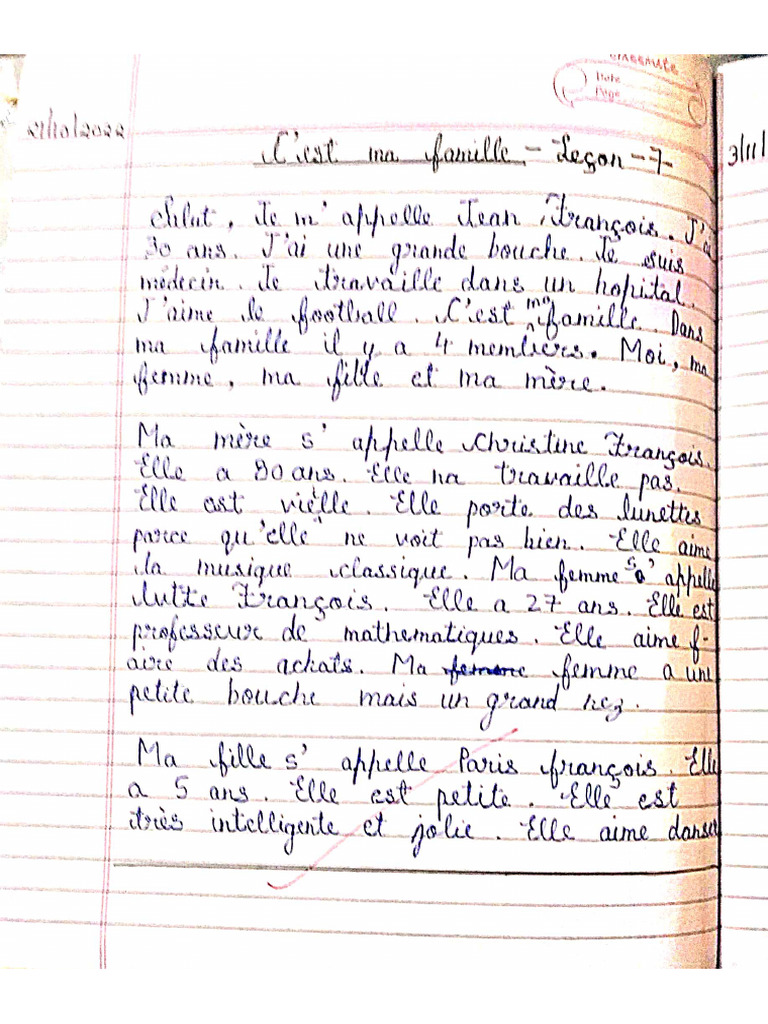 classmate
Date
Page
21/10/2022
C'est ma famille - Leçon - 7-
3/11/
Salut, Je m'appelle Jean François. J'ai
30 ans. J'ai une grande bouche. Je suis
médecin. Je travaille dans un hopital.
J'aime le football. C'est ma famille. Dans
ma famille il y a 4 membiers. Moi, ma
femme, ma fille et ma mère.
Ma mère s'appelle Christine François.
Elle a 90 ans. Elle na travaille pas.
Elle est vièlle. Elle porte des lunettes
parce qu'elle ne voit pas bien. Elle aime
la musique classique. Ma femme s'appelle
François. Elle a 27 ans. Elle est
professeur de mathematiques. Elle aime f-
aire des achats. Ma femme a une
petite bouche mais un grand nez.
Ma fille s'appelle Paris françois. Elle
a 5 ans. Elle est petite. Elle est
très intelligente et jolie. Elle aime danser